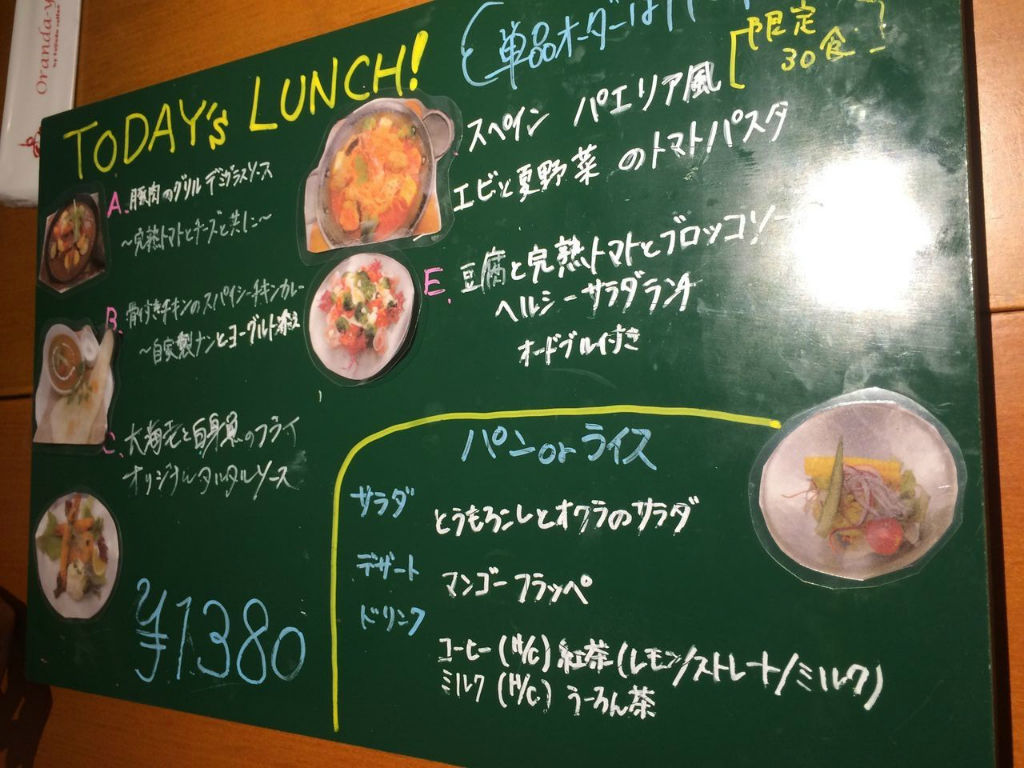 Oranda-
TODAY's LUNCH!
(単品オーダーは
限定
30食
A. 豚肉のグリル デミグラスソース
〜完熟トマトとチーズと共に〜
B. 骨付きチキンのスパイシーチキンカレー
〜自家製ナンとヨーグルト添え
C. 大海老と白身魚のフライ
オリジナルタルタルソース
¥1380
スペイン パエリア風
エビと夏野菜のトマトパスタ
E. 豆腐と完熟トマトとブロッコリー
ヘルシーサラダランチ
オードブル付き
パン or ライス
サラダ とうもろこしとオクラのサラダ
デザート マンゴーフラッペ
ドリンク
コーヒー (H/C) 紅茶 (レモン/ストレート/ミルク)
ミルク (H/C) うーろん茶